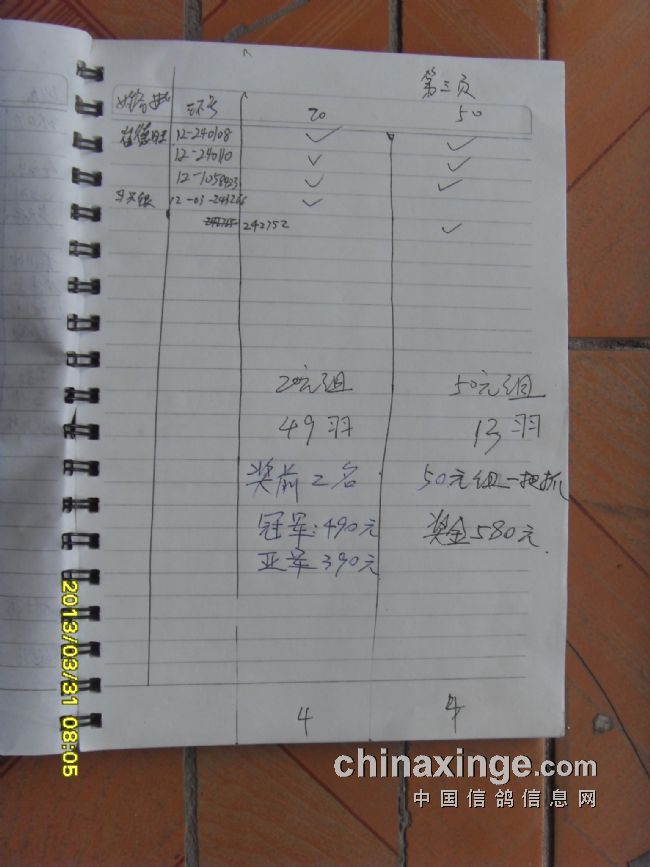 第三页
环号 20 50
12-240108 ✓ ✓
12-240110 ✓ ✓
✓ ✓
✓
242752 ✓
20元组 50元组
49羽 13羽
奖前2名 50元组一把抓
冠军:490元 奖金580元
亚军390元
4 4
2013/03/31 08:05
chinaxinge.com
中国信鸽信息网